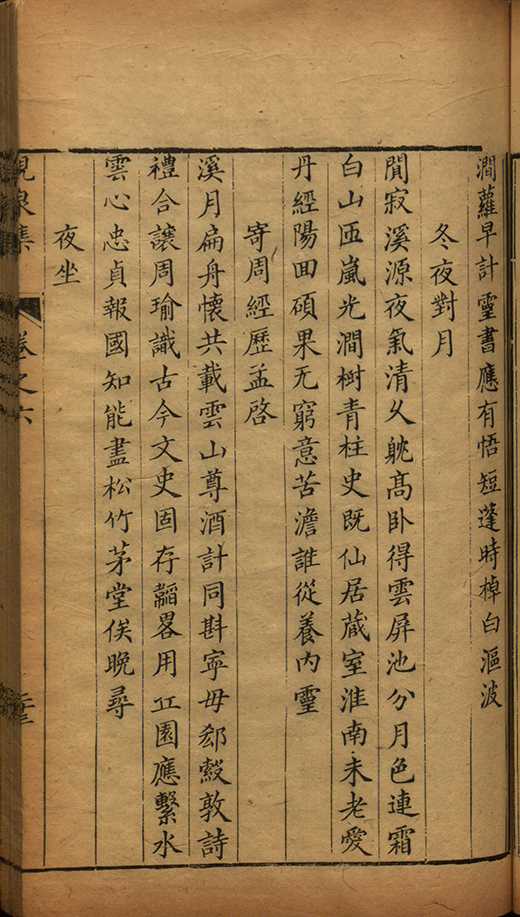 澗蘿早計靈書應有悟短蓬時棹白漚波
冬夜對月
閒寂溪源夜氣清久躭髙卧得雲屏池分月色連霜
白山匝嵐光澗樹青柱史既仙居蔵室淮南未老愛
丹經陽回碩果无窮意苦澹誰從養内靈
寄周經歷孟啓
溪月扁舟懷共載雲山尊酒計同斟寧毋郄縠敦詩
禮合讓周瑜識古今文史固存韜畧用丘園應繫水
雲心忠貞報國知能盡松竹茅堂俟晚尋
夜坐
泉集 卷之六